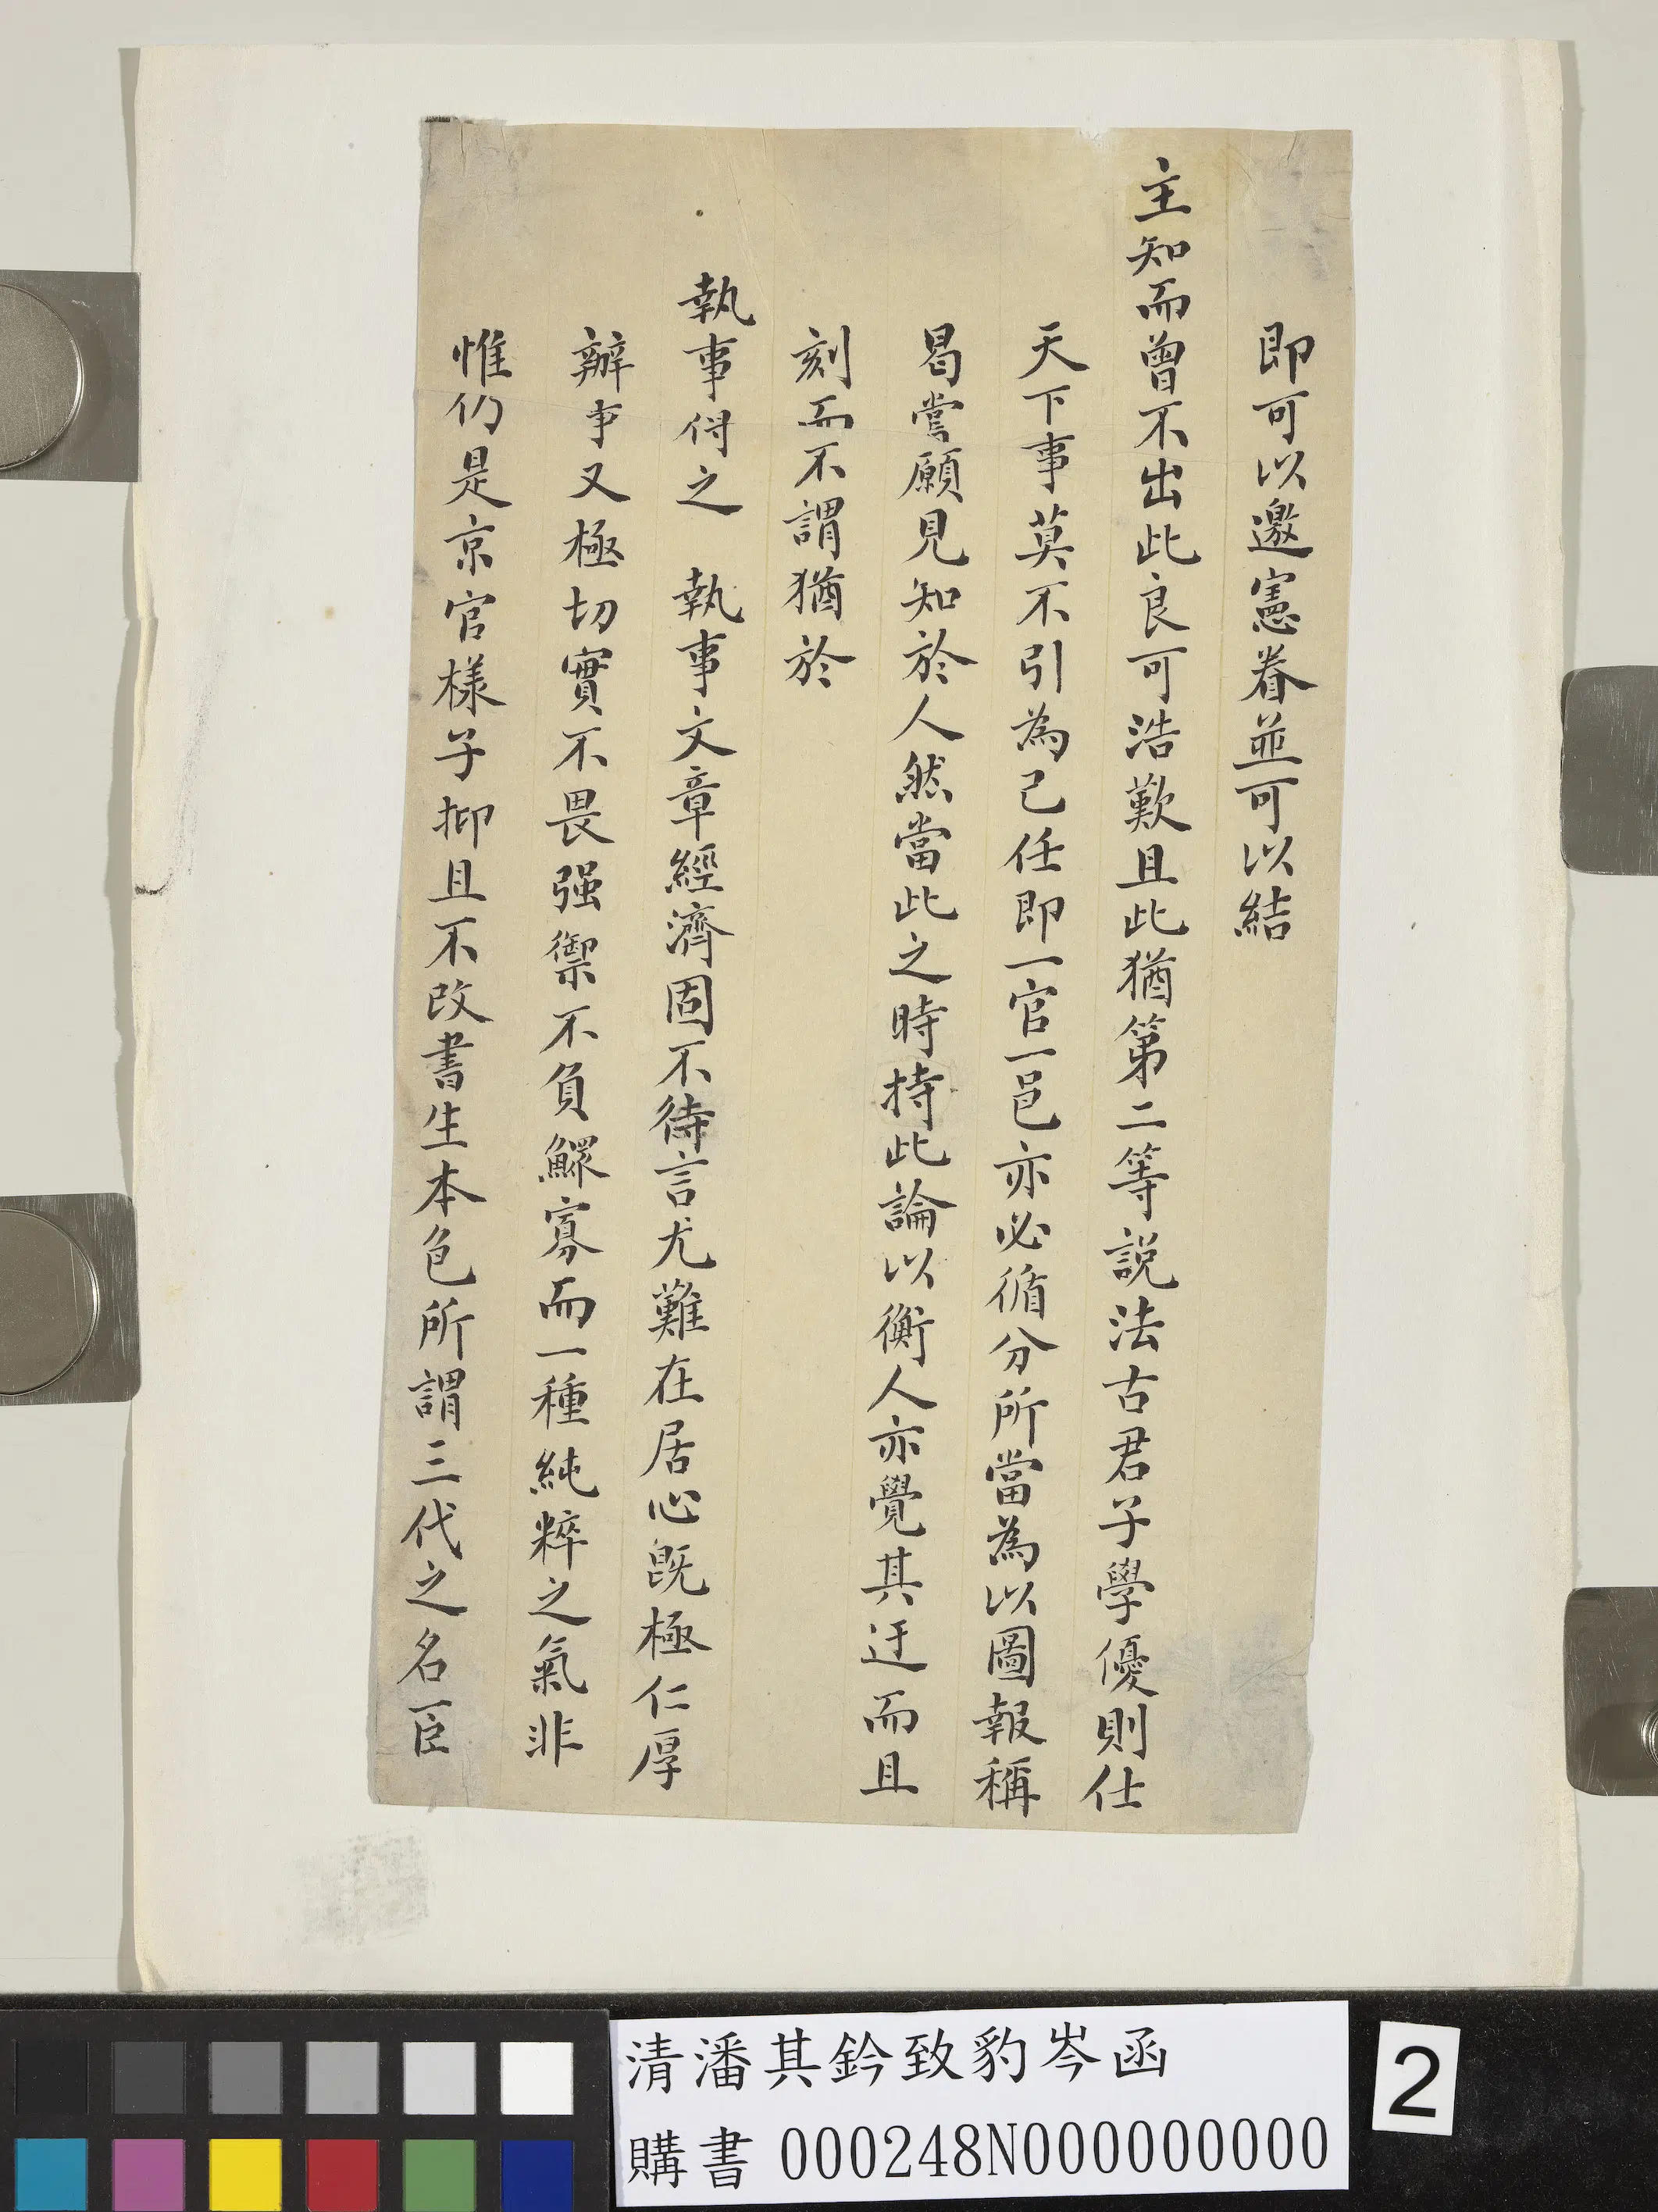 即可以邀憲眷並可以結
主知而曾不出此良可浩歎且此猶第二等說法古君子學優則仕
天下事莫不引為己任即一官一邑亦必循分所當為以圖報稱
曷嘗願見知於人然當此之時持此論以衡人亦覺其迂而且
刻而不謂猶於
執事得之　執事文章經濟固不待言尤難在居心既極仁厚
辦事又極切實不畏强禦不負鰥寡而一種純粹之氣非
惟仍是京官樣子抑且不改書生本色所謂三代之名臣
清潘其鈐致豹岑函
購書 000248N000000000
2